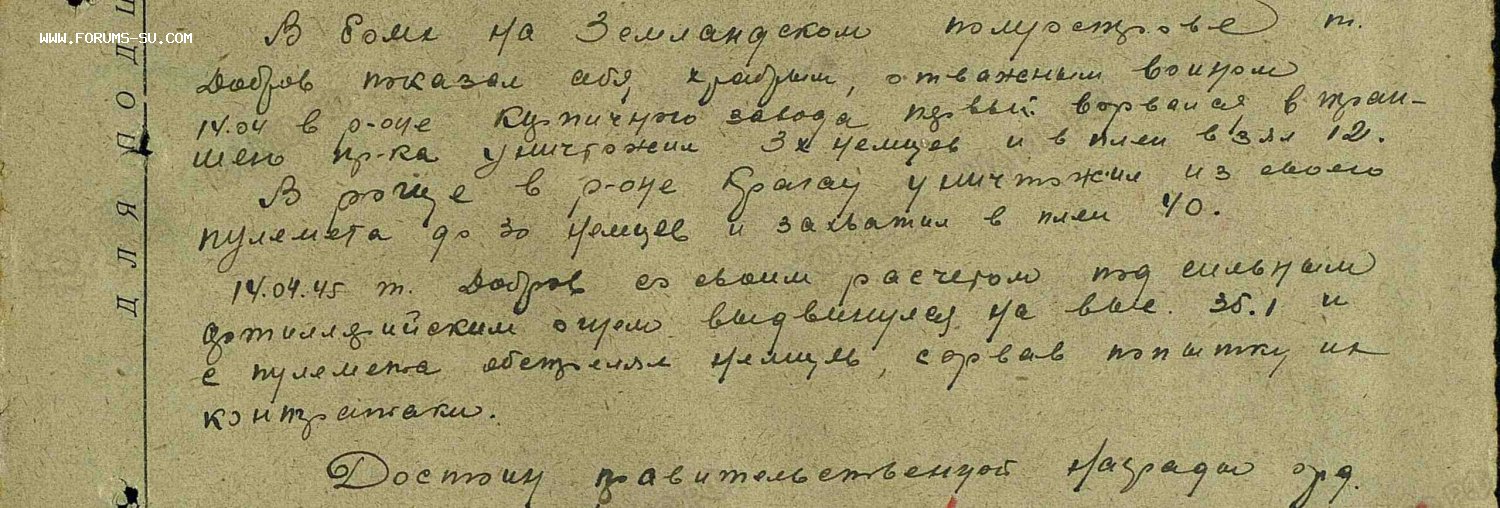 WWW.FORUMS-SU.COM
ДЛЯ ПОДШ
В боях на Земландском полуострове т.
Добров показал себя храбрым, отважным воином
14.04 в р-оне Кирпичного завода первый ворвался в тран-
шею пр-ка уничтожил 3х немцев и в плен взял 12.
В роще в р-оне Кратау уничтожил из своего
пулемета до 30 немцев и захватил в плен 40.
14.04.45 т. Добров со своим расчетом под сильным
артиллерийским огнем выдвинулся на выс. 35.1 и
с пулемета обстрелял немцев, сорвав попытку их
контратаки.
Достоин правительственной награды орд.